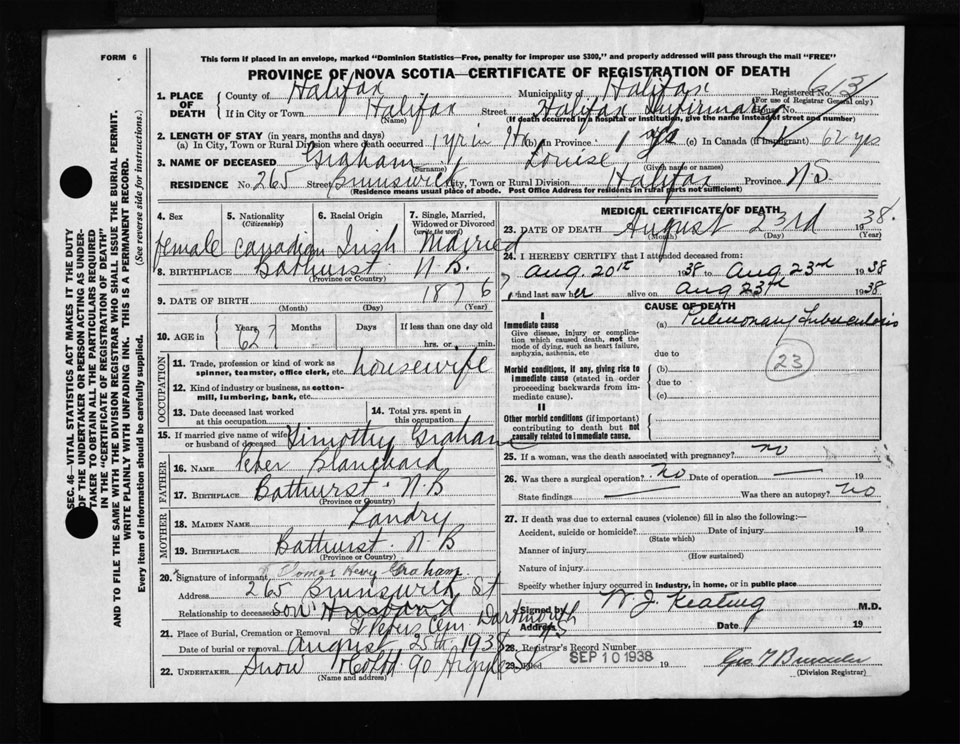 FORM 6
This form if placed in an envelope, marked "Dominion Statistics—Free, penalty for improper use $300," and properly addressed will pass through the mail "FREE"
PROVINCE OF NOVA SCOTIA—CERTIFICATE OF REGISTRATION OF DEATH
SEC. 46—VITAL STATISTICS ACT MAKES IT THE DUTY
OF THE UNDERTAKER OR PERSON ACTING AS UNDER-
TAKER TO OBTAIN ALL THE PARTICULARS REQUIRED
IN THE "CERTIFICATE OF REGISTRATION OF DEATH"
AND TO FILE THE SAME WITH THE DIVISION REGISTRAR WHO SHALL ISSUE THE BURIAL PERMIT.
WRITE PLAINLY WITH UNFADING INK. THIS IS A PERMANENT RECORD.
Every item of information should be carefully supplied. (See reverse side for instructions.)
1. PLACE OF DEATH County of Halifax Municipality of Halifax Registered No.
(For use of Registrar General only)
If in City or Town Halifax Street Halifax Infirmary House No.
(Name) (If death occurred in a hospital or institution, give the name instead of street and number)
2. LENGTH OF STAY (in years, months and days)
(a) In City, Town or Rural Division where death occurred 1 yr in Hx (b) in Province 1 yr (c) In Canada (if immigrant) 62 yrs
3. NAME OF DECEASED Graham Louise
(Surname) (Given name or names)
RESIDENCE No. 265 Street Brunswick City, Town or Rural Division Halifax Province N.S
(Residence means usual place of abode. Post Office Address for residents in rural parts not sufficient)
4. Sex 5. Nationality (Citizenship) 6. Racial Origin 7. Single, Married, Widowed or Divorced (write the word)
Female Canadian Irish Married
8. BIRTHPLACE Bathurst N.B.
(Province or Country)
9. DATE OF BIRTH 1876
(Month) (Day) (Year)
10. AGE in Years Months Days If less than one day old
62 hrs. or min.
OCCUPATION
11. Trade, profession or kind of work as spinner, teamster, office clerk, etc. housewife
12. Kind of industry or business, as cotton-mill, lumbering, bank, etc.
13. Date deceased last worked at this occupation
14. Total yrs. spent in this occupation
15. If married give name of wife or husband of deceased Timothy Graham
FATHER
16. NAME Peter Blanchard
17. BIRTHPLACE Bathurst N.B
(Province or Country)
MOTHER
18. MAIDEN NAME Landry
19. BIRTHPLACE Bathurst N.B
(Province or Country)
20. Signature of informant Henry Graham
Address 265 Brunswick St
Relationship to deceased son Husband
21. Place of Burial, Cremation or Removal St Peters Cem Dartmouth NS
Date of burial or removal August 25th 1938
22. UNDERTAKER Snow 90 Argyle
(Name and address)
MEDICAL CERTIFICATE OF DEATH
23. DATE OF DEATH August 23rd 1938.
(Month) (Day) (Year)
24. I HEREBY CERTIFY that I attended deceased from:
Aug. 20th 1938 to Aug 23rd 1938
and last saw her alive on Aug 23rd 1938
CAUSE OF DEATH
I
Immediate cause
Give disease, injury or complication which caused death, not the mode of dying, such as heart failure, asphyxia, asthenia, etc
(a) Pulmonary Tuberculosis
due to
23
Morbid conditions, if any, giving rise to immediate cause (stated in order proceeding backwards from immediate cause).
(b)
due to
(c)
II
Other morbid conditions (if important) contributing to death but not causally related to immediate cause.
25. If a woman, was the death associated with pregnancy? no
26. Was there a surgical operation? no Date of operation 19
State findings Was there an autopsy? no
27. If death was due to external causes (violence) fill in also the following:—
Accident, suicide or homicide? Date of injury 19
(State which)
Manner of injury
(How sustained)
Nature of injury
Specify whether injury occurred in industry, in home, or in public place
Signed by W. J. Keating M.D.
Address Date 19
28. Registrar's Record Number
29. Filed SEP 10 1938 19
(Division Registrar)